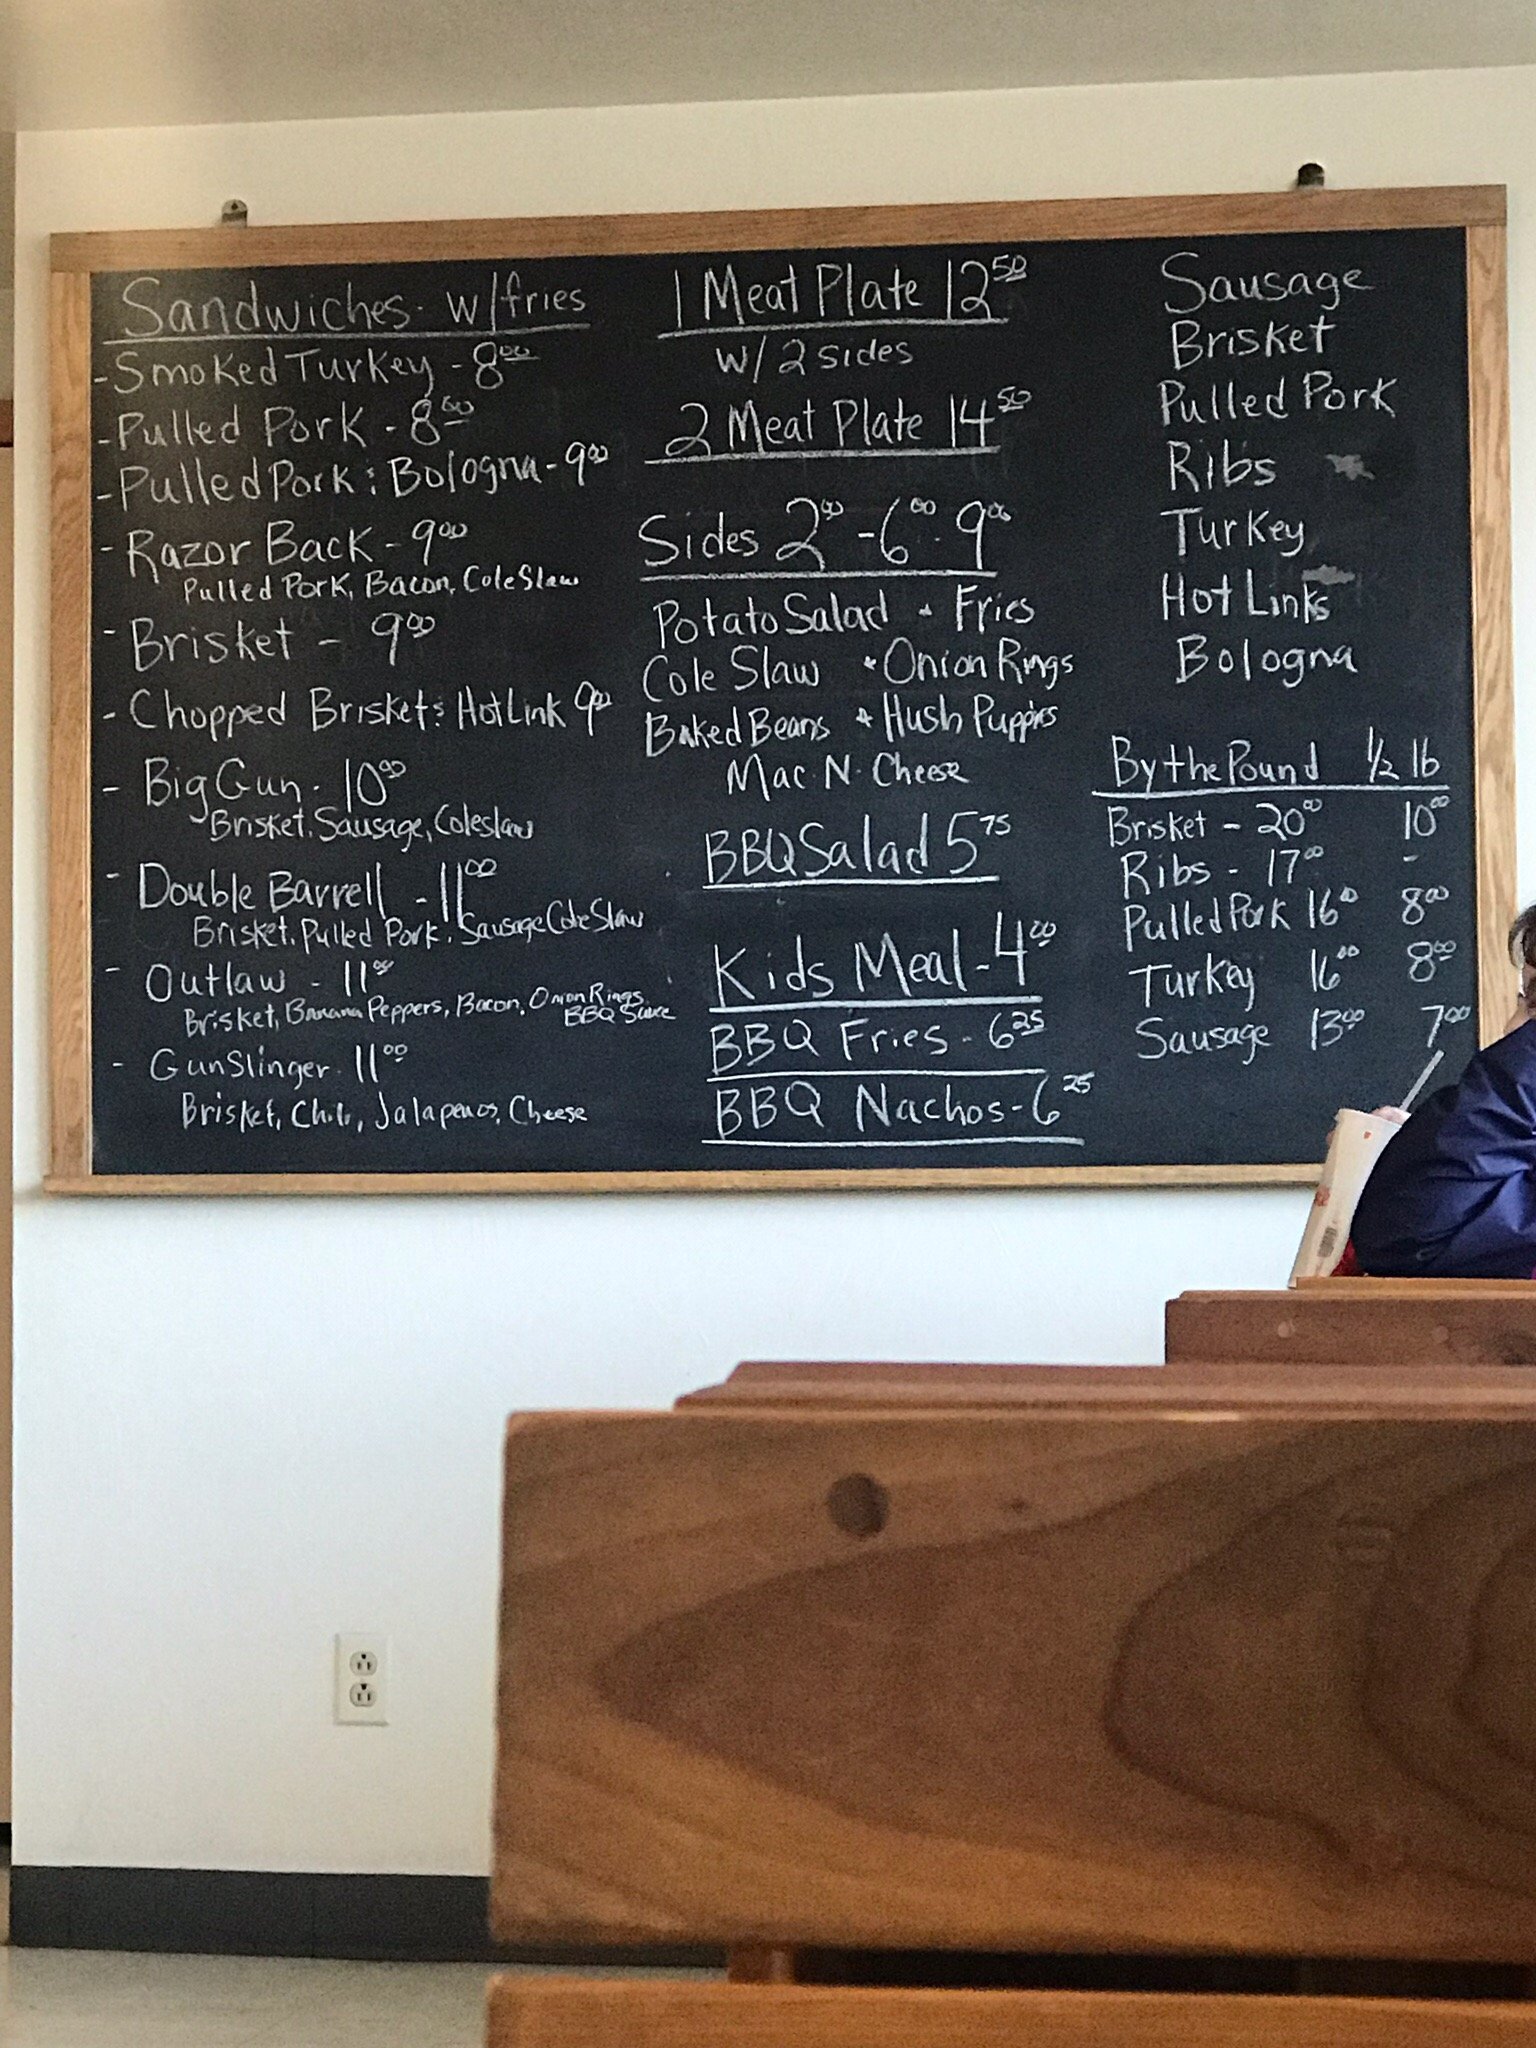 Sandwiches - w/fries
- Smoked Turkey - 8.00
- Pulled Pork - 8.00
- Pulled Pork & Bologna - 9.00
- Razor Back - 9.00
Pulled Pork, Bacon, Cole Slaw
- Brisket - 9.00
- Chopped Brisket & Hot Link 9.00
- Big Gun - 10.00
Brisket, Sausage, Coleslaw
- Double Barrell - 11.00
Brisket, Pulled Pork, Sausage Cole Slaw
- Outlaw - 11.00
Brisket, Banana Peppers, Bacon, Onion Rings
BBQ Sauce
- Gunslinger - 11.00
Brisket, Chili, Jalapenos, Cheese
1 Meat Plate 12.50
w/ 2 sides
2 Meat Plate 14.50
Sides 2.00 - 6.00 - 9.00
Potato Salad • Fries
Cole Slaw • Onion Rings
Baked Beans • Hush Puppies
Mac-N-Cheese
BBQ Salad 5.75
Kids Meal - 4.00
BBQ Fries - 6.25
BBQ Nachos - 6.25
Sausage
Brisket
Pulled Pork
Ribs
Turkey
Hot Links
Bologna
By the Pound 1/2 lb
Brisket - 20.00 10.00
Ribs - 17.00 -
Pulled Pork 16.00 8.00
Turkey 16.00 8.00
Sausage 13.00 7.00